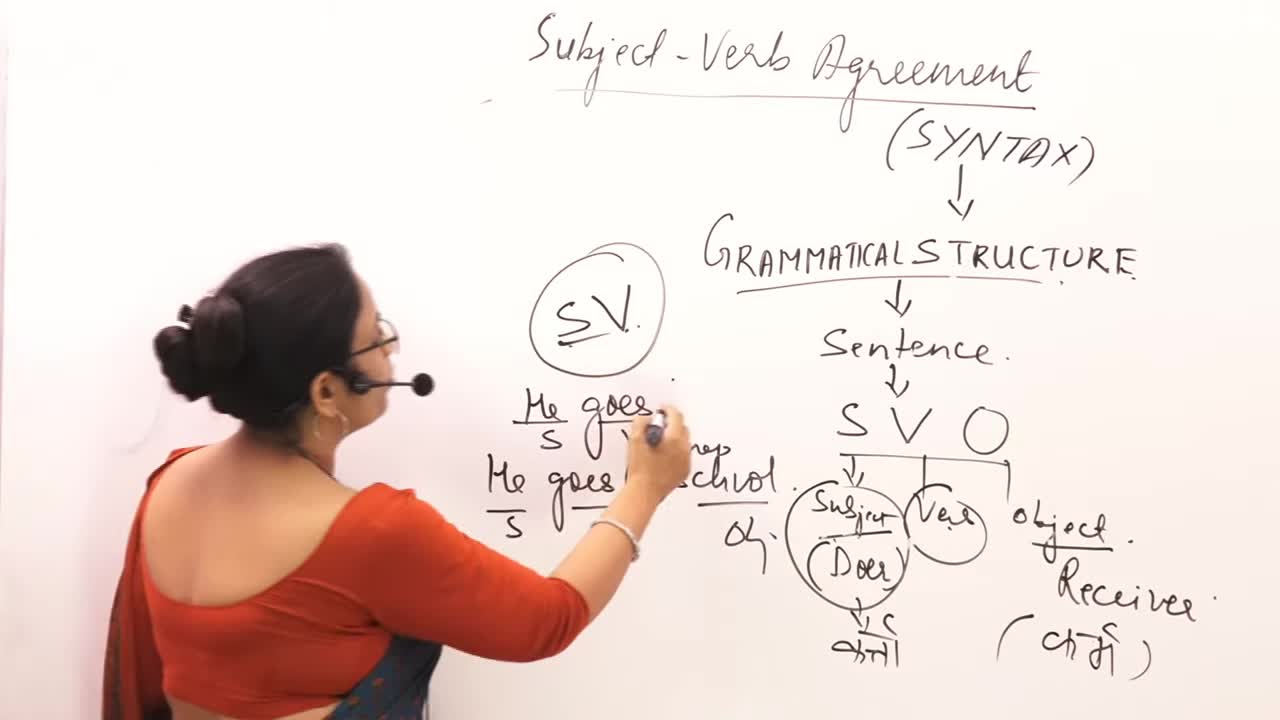 Subject-Verb Agreement
(SYNTAX)
GRAMMATICAL STRUCTURE
Sentence.
S V O
Subject
(Doer)
कर्ता
Verb
object.
Receiver
(कर्म)
SV.
He goes
S
He goes school.
S obj.